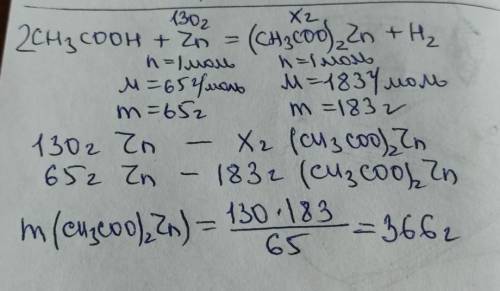 130г хг
2CH₃COOH + Zn = (CH₃COO)₂Zn + H₂
n=1моль n=1моль
M=65г/моль M=183г/моль
m=65г m=183г
130г Zn — хг (CH₃COO)₂Zn
65г Zn — 183г (CH₃COO)₂Zn
m(CH₃COO)₂Zn) = 130·183/65 = 366г